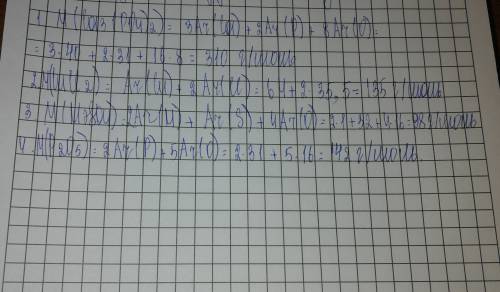 1 M(Ca3(PO4)2) = 3Ar(Ca) + 2Ar(P) + 8Ar(O) =
= 3·40 + 2·31 + 16·8 = 310 г/моль
2 M(CuCl2) = Ar(Cu) + 2Ar(Cl) = 64 + 2·35,5 = 135 г/моль
3 = 2Ar(H) + Ar(S) + 4Ar(O) = 2·1 + 32 + 4·16 = 98 г/моль
4. M(P2O5) = 2Ar(P) + 5Ar(O) = 2·31 + 5·16 = 142 г/моль.